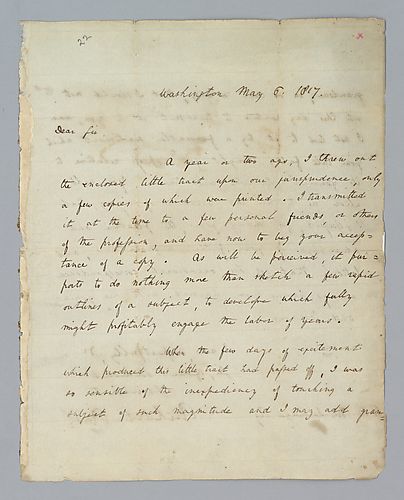 Washington May 6. 1817.
Dear Sir.
A year or two ago, I threw out
the enclosed little tract upon our jurisprudence, only
a few copies of which were printed. I transmitted
it at the time to a few personal friends or others
of the profession, and have now to beg your accep-
tance of a copy. As will be perceived, it pur-
ports to do nothing more than sketch a few rapid
outlines of a subject, to develope which fully
might profitably engage the labor of years.
When the few days of excitement
which produced this little tract had passed off, I was
so sensible of the inexpediency of touching a
subject of such magnitude and I may add gran-